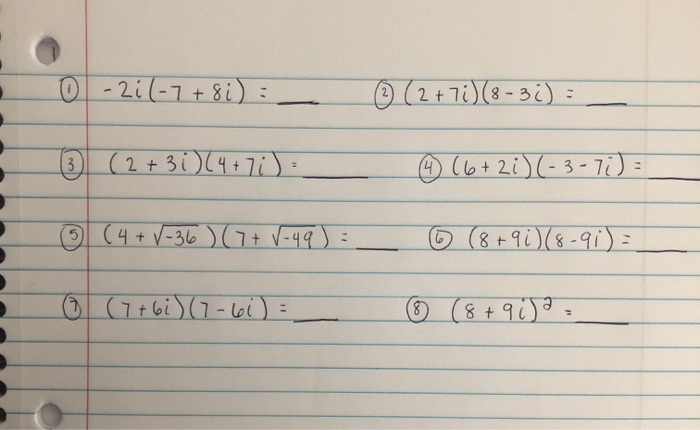 ① -2i(-7 + 8i) = __ ② (2 + 7i)(8 - 3i) = __
③ (2 + 3i)(4 + 7i) = __ ④ (6 + 2i)(-3 - 7i) = __
⑤ (4 + √-36)(7 + √-49) = __ ⑥ (8 + 9i)(8 - 9i) = __
⑦ (7 + 6i)(7 - 6i) = __ ⑧ (8 + 9i)² = __